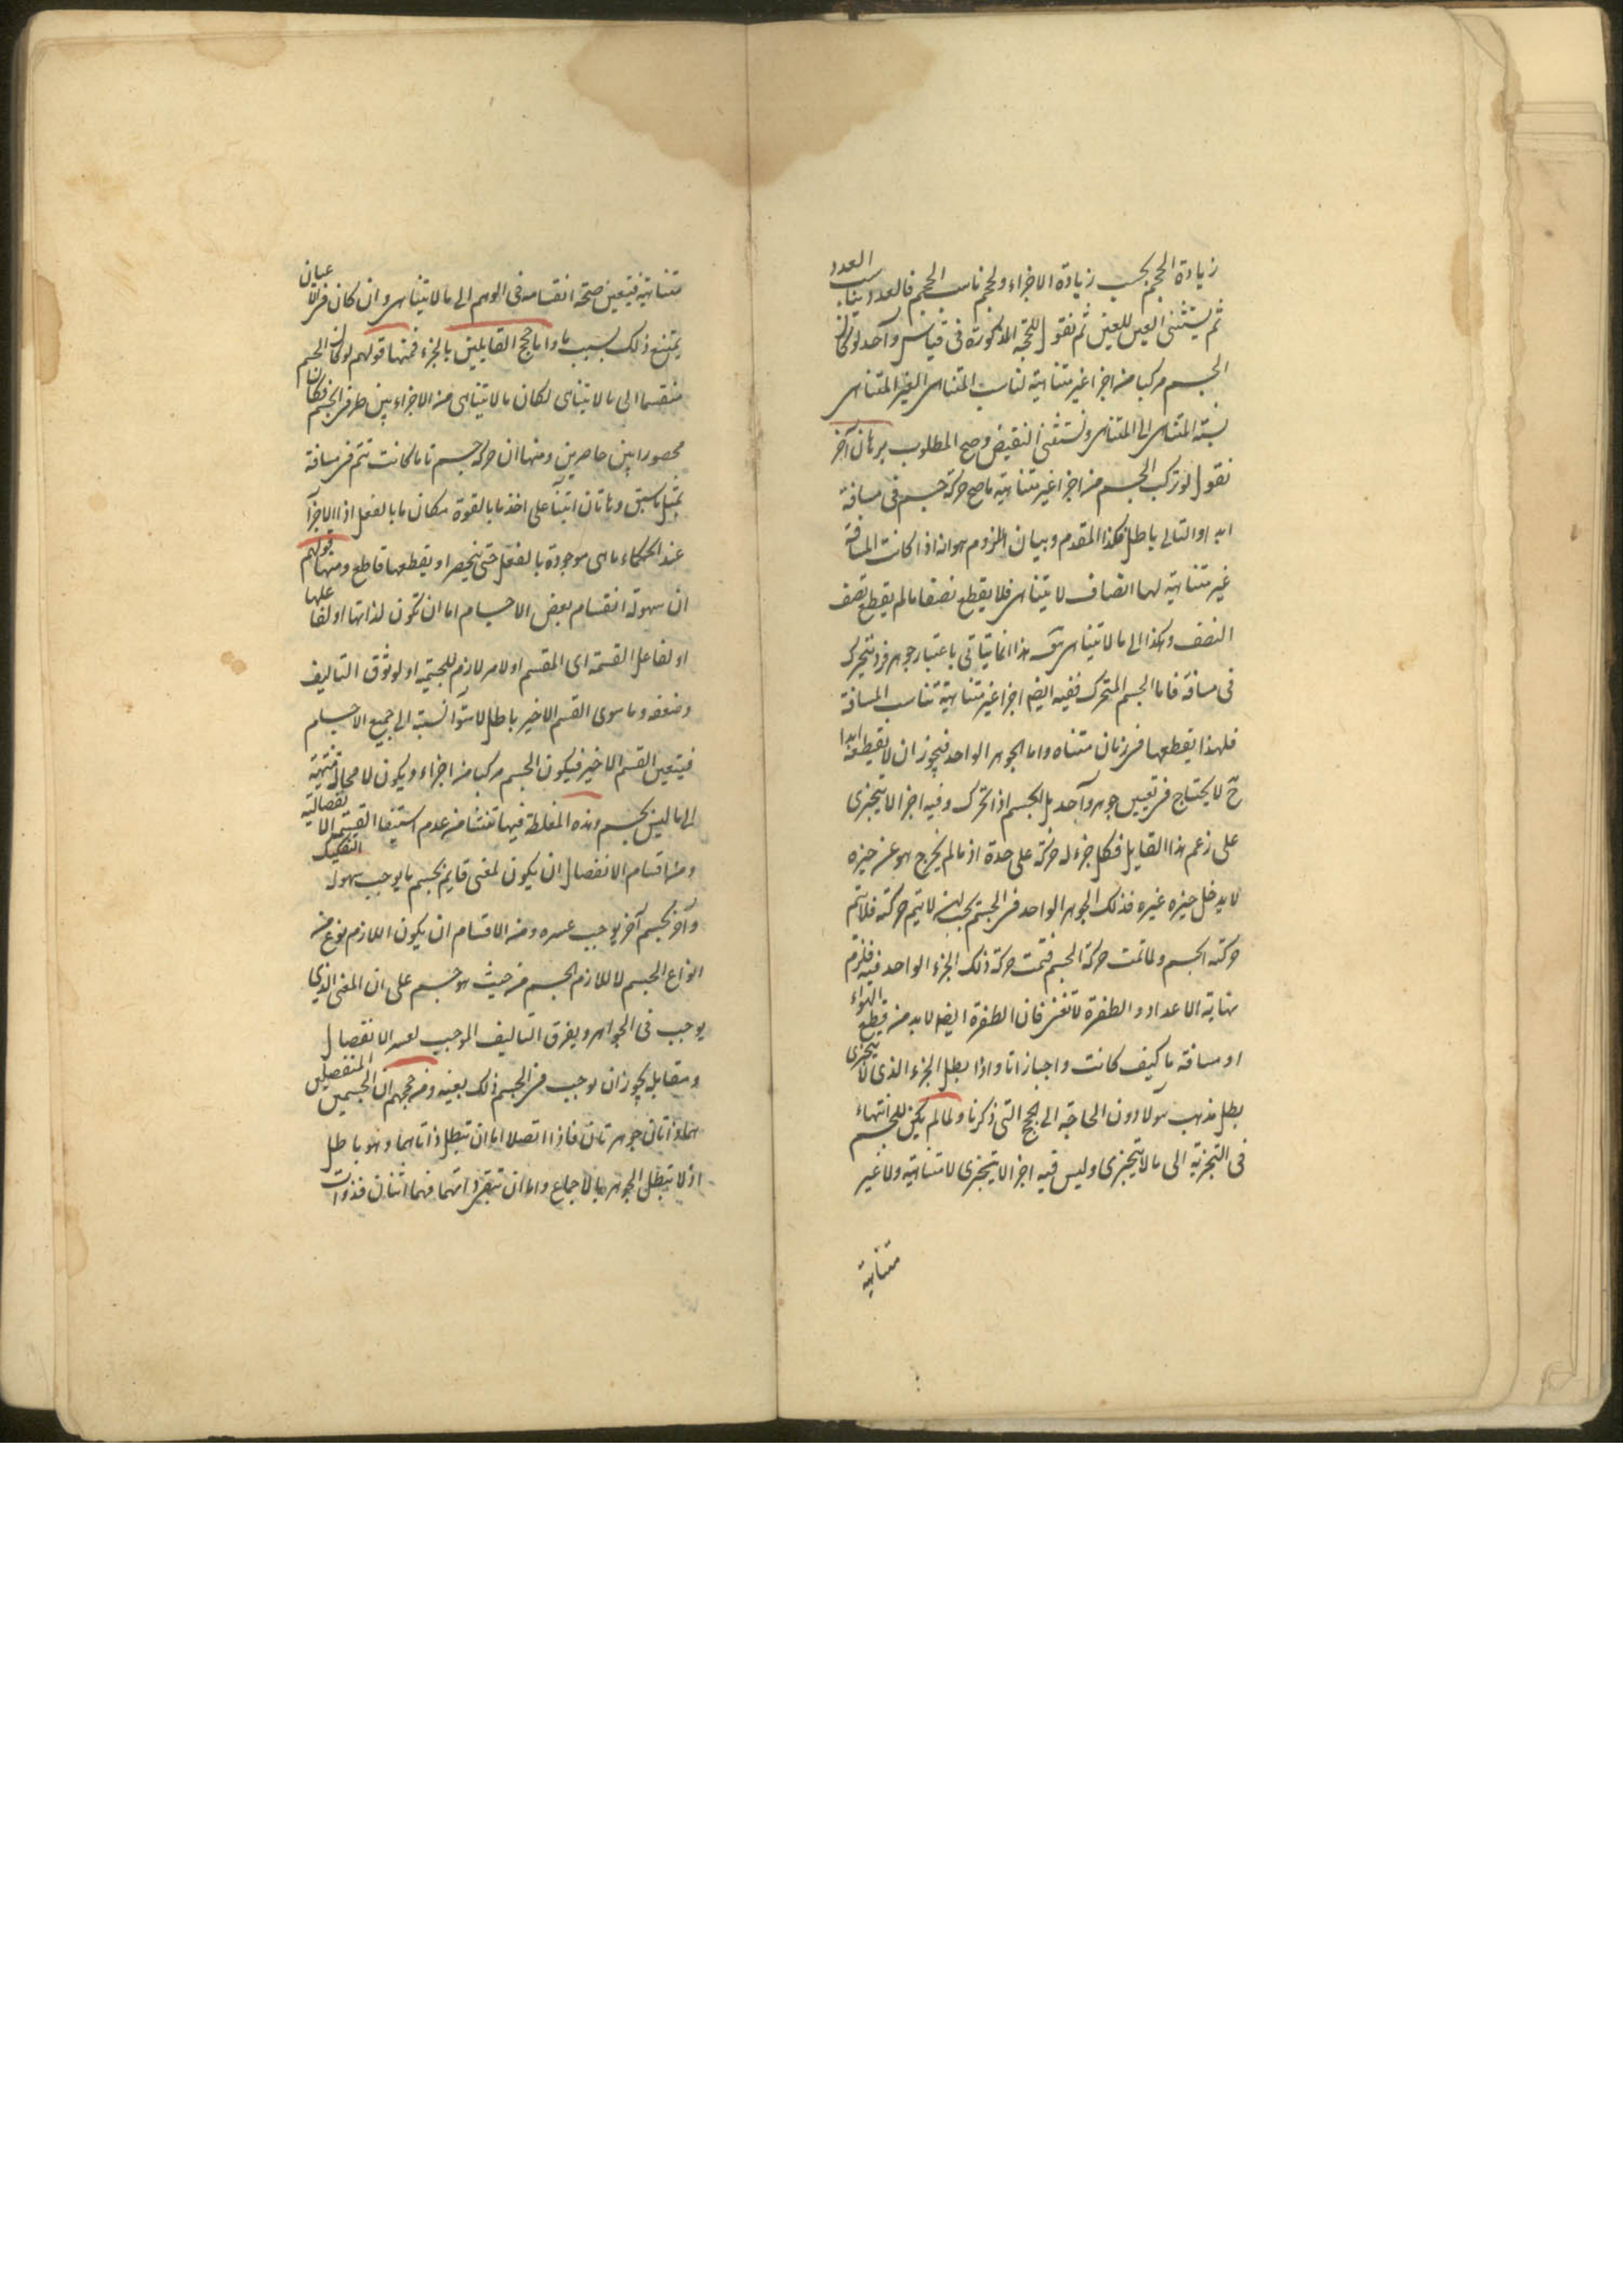 زيادة الحجم بحسب زيادة الاجزاء والحجم ناسب الحجم فالعدد يناسب العدد
ثم يستثنى العين للعين ثم نقول للحجة المذكورة فى قياس واحد لو كان
الجسم مركبا من اجزا غير متناهية لناسب المتناهى الغير المتناهى
نسبة المتناهى الى المتناهى ونستثنى النقيض وصح المطلوب برهان آخر
نقول لو تركب الجسم من اجزا غير متناهية ما صح حركة جسم فى مسافة
ابدا والتالى باطل فكذا المقدم وبيان اللزوم هو انه اذا كانت المسافة
غير متناهية لها انصاف لا يتناهى فلا يقطع نصفا ما لم يقطع نصف
النصف وهكذا الى ما لا يتناهى هذا انما يتاتى باعتبار جوهر فرد يتحرك
فى مسافة فاما الجسم المتحرك ففيه ايضا اجزا غير متناهية تناسب المسافة
فلهذا يقطعها فى زمان متناه واما الجوهر الواحد فيجوز ان لا يقطعها ابدا
ح لا يحتاج فى تعيين جوهر واحد بل الجسم اذا تحرك وفيه اجزا لا يتجزى
على زعم هذا القايل فكل جزء له حركة على حدة اذ ما لم يخرج هو عن حيزه
لا يدخل حيزه غيره فذلك الجوهر الواحد فى الجسم يجب ان لا يتم حركته فلا يتم
حركة الجسم ولما تمت حركة الجسم فتمت حركة ذلك الجزء الواحد فيه فلزم
نهاية الاعداد والطفرة لا تغنى فان الطفرة ايضا لا بد من قطع الهواء
او مسافة ما كيف كانت واجتازاتا واذا بطل الجزء الذى لا يتجزى
بطل مذهب هولا دون الحاجة الى الحجج التى ذكرنا ولما لم يكن للجسم انتهاء
فى التجزية الى ما لا يتجزى وليس فيه اجزا لا يتجزى لا متناهية ولا غير
متناهية
متناهية فتعين صحة انقسامه فى الوهم الى ما لا يتناهى وان كان فى الاعيان
يمتنع ذلك بسبب ما واما حجج القايلين بالجزء فمنها قولهم لو كان الجسم
منقسما الى ما لا يتناهى لكان ما لا يتناهى من الاجزاء بين طرفى الجسم فكان
محصورا بين حاصرين ومنها ان حركة جسم ما ما كانت تتم فى مسافة
بمثل ما سبق وهاتان ابتنا على اخذ ما بالقوة مكان ما بالفعل اذ الاجزآ
عند الحكماء ما هى موجودة بالفعل حتى ينحصر او يقطعها قاطع ومنها قولهم
ان سهولة انقسام بعض الاجسام اما ان تكون لذاتها او لفاعلها
او لفاعل القسمة اى المقسم او لامر لازم للجسمية او لوثوق التاليف
وضعفه وما سوى القسم الاخير باطل لاستوآ نسبته الى جميع الاجسام
فيتعين القسم الاخير فيكون الجسم مركبا من اجزاء ويكون لا محالة منتهية
الى ما ليس بجسم وهذه المغلطة فيها تنشا من عدم استيفا القسم الانفصالية
ومن اقسام الانفصال ان يكون لمعنى قايم بجسم ما يوجب سهولة التفكيك
وآخر بجسم آخر يوجب عسره ومن الاقسام ان يكون اللازم نوع من
انواع الجسم لا اللازم الجسم من حيث هو جسم على ان المعنى الذى
يوجب فى الجواهر ويفرق التاليف الموجب لعسر الانفصال
ومقابله يجوز ان يوجب فى الجسم ذلك بعينه ومن حججهم ان الجسمين المنفصلين
هما ذاتان جوهرتان فاذا اتصلا اما ان تبطل ذاتاهما وهو باطل
اذ لا تبطل الجوهر بالاجماع واما ان تبقى ذاتهما فهما اثنان فذوات